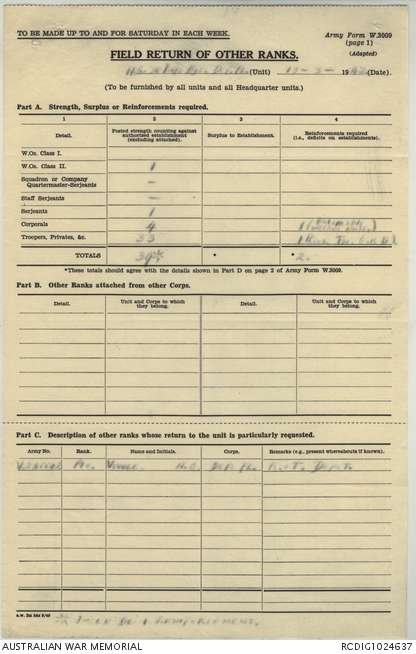 TO BE MADE UP TO AND FOR SATURDAY IN EACH WEEK.
Army Form W.3009
(page 1)
(Adapted)
FIELD RETURN OF OTHER RANKS.
(Unit) (Date).
(To be furnished by all units and all Headquarter units.)
Part A. Strength, Surplus or Reinforcements required.
1 2 3 4
Detail. Posted strength counting against authorized establishment (excluding attached). Surplus to Establishment. Reinforcements required (i.e., deficits on establishments).
W.Os. Class I.
W.Os. Class II. 1
Squadron or Company Quartermaster-Serjeants –
Staff Serjeants –
Serjeants 1
Corporals 4
Troopers, Privates, &c. 33
TOTALS 39 * * 2.
*These totals should agree with the details shown in Part D on page 2 of Army Form W.3009.
Part B. Other Ranks attached from other Corps.
Detail. Unit and Corps to which they belong. Detail. Unit and Corps to which they belong.
Part C. Description of other ranks whose return to the unit is particularly requested.
Army No. Rank. Name and Initials. Corps. Remarks (e.g., present whereabouts if known).
AUSTRALIAN WAR MEMORIAL
RCDIG1024637